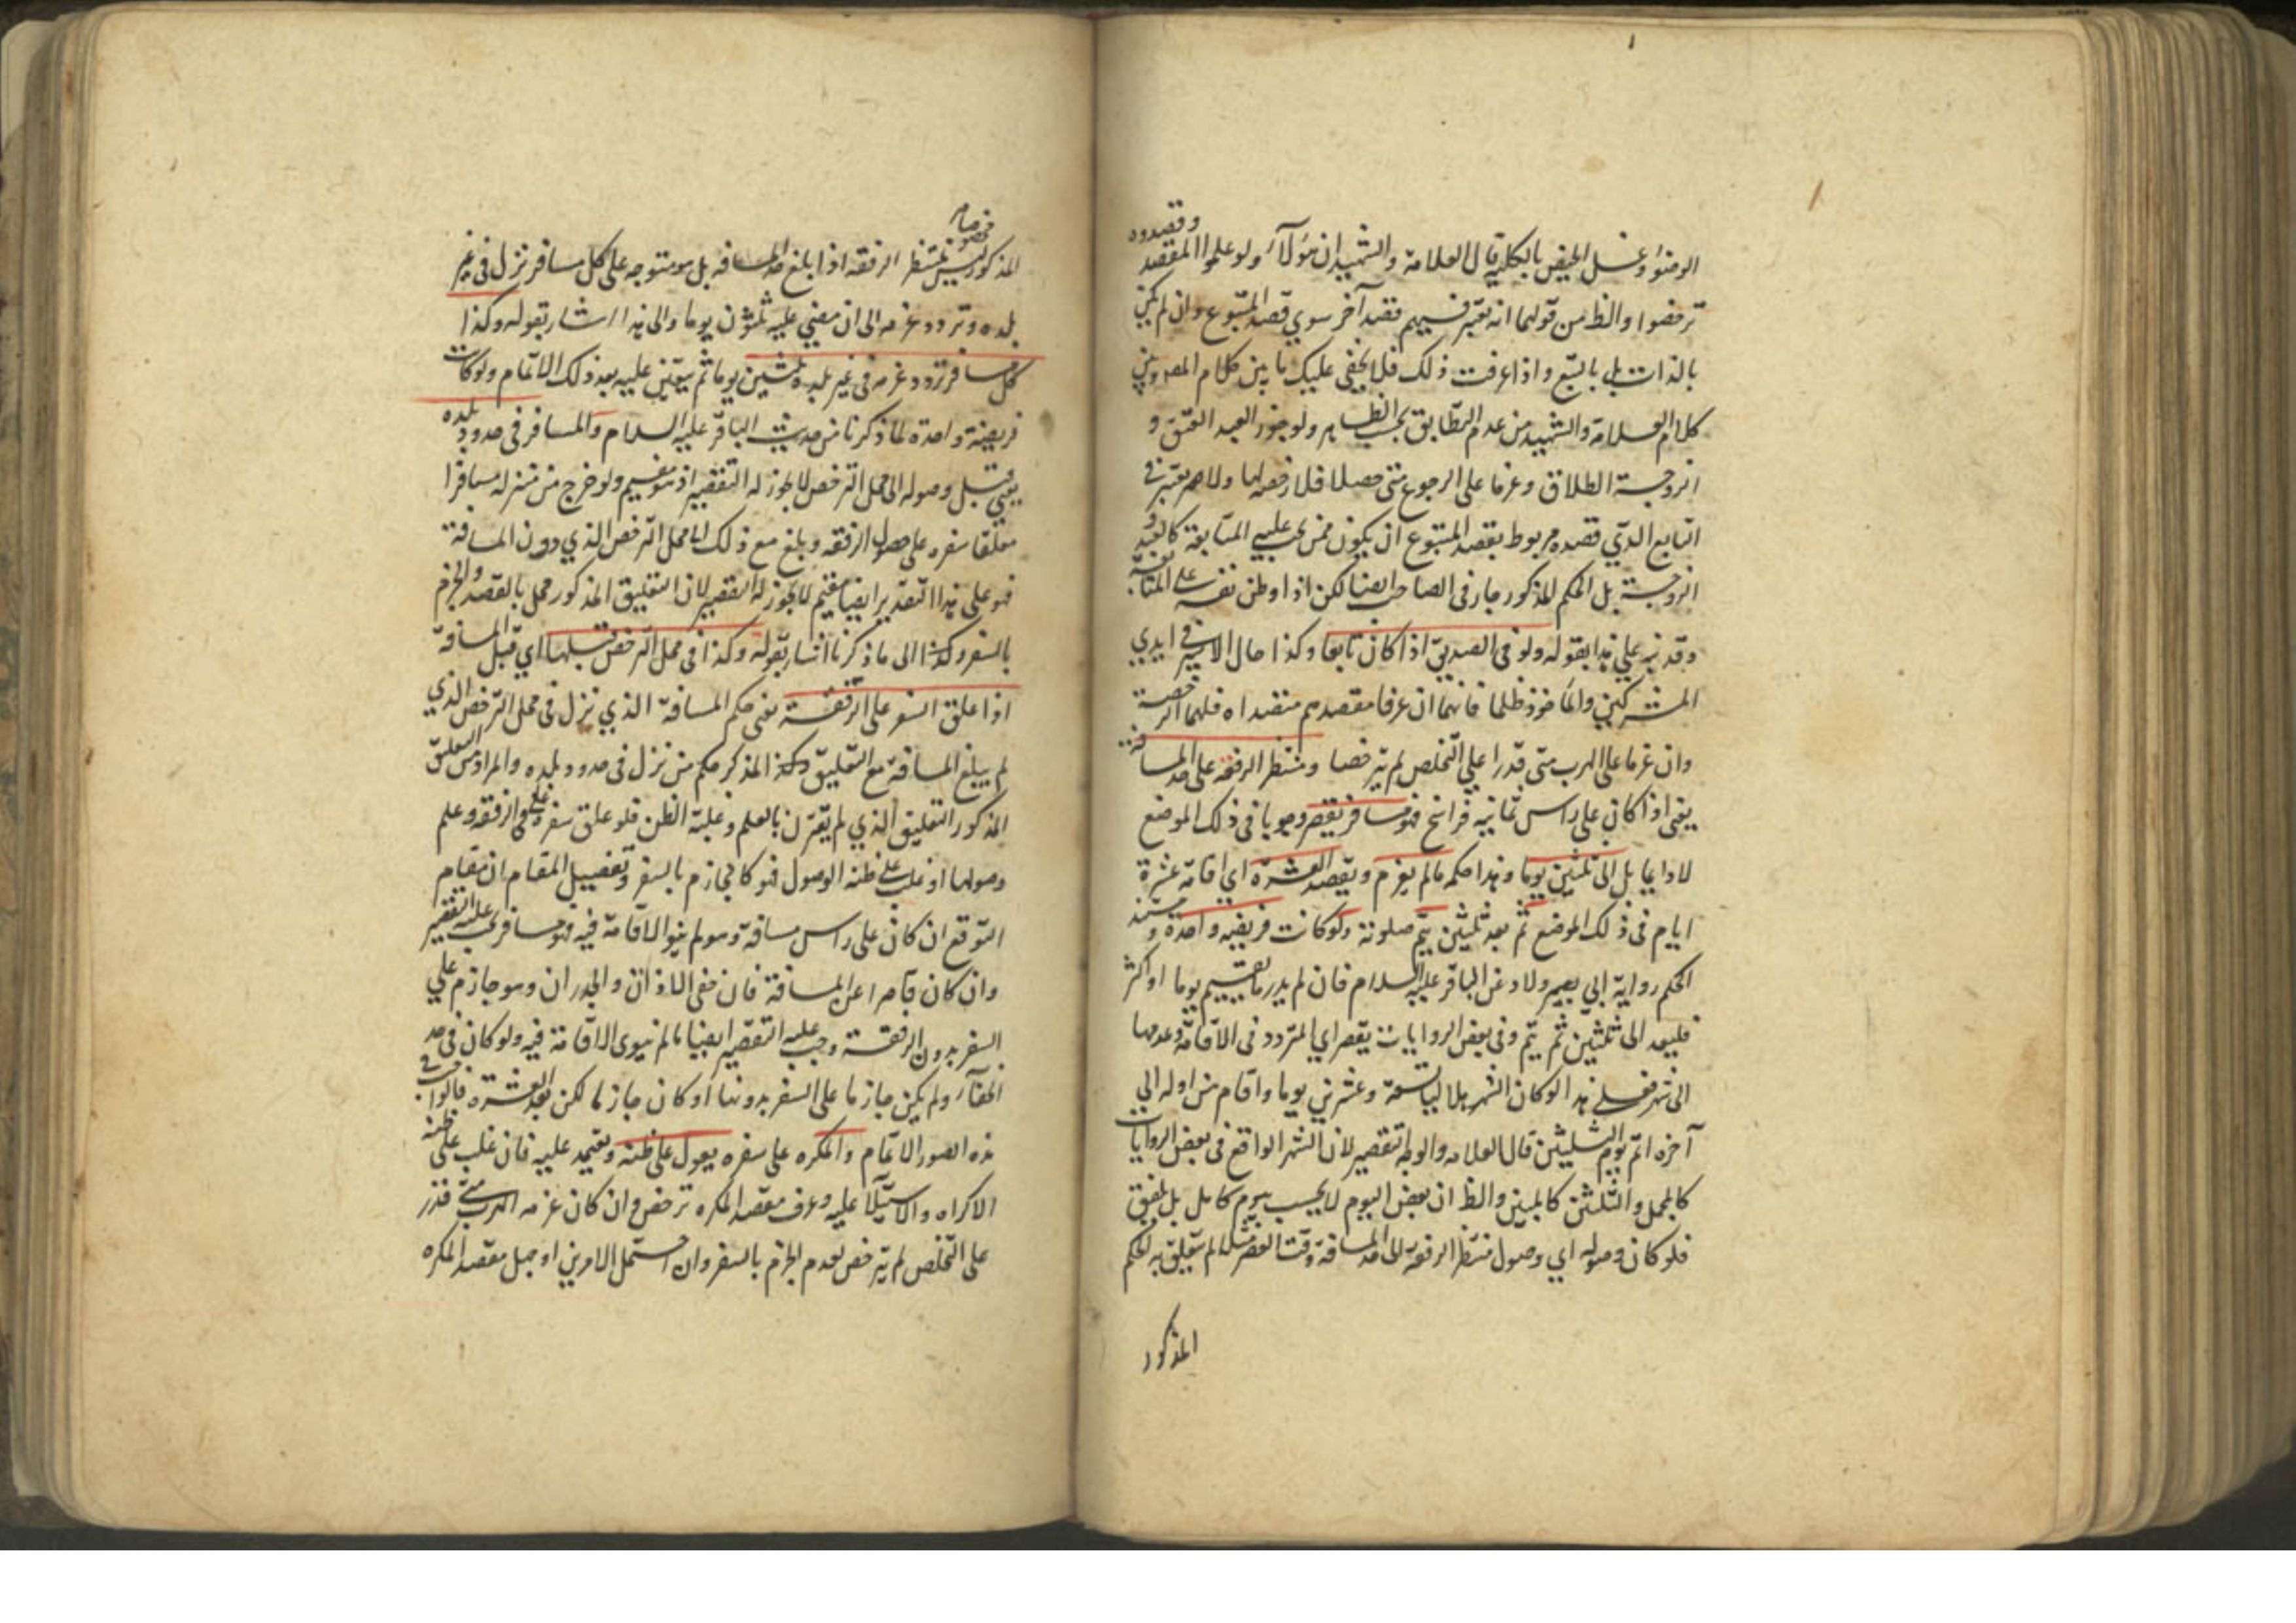 الوضوء وغسل الحيض بالكلية قال العلامة والشهيد ان هؤلاء ولو علموا المقصد وقصدوه
ترخصوا والظ من قولهما انه يعتبر فيهم قصد آخر سوي قصد المتبوع وان لم يكن
بالذات بل بالتبع واذا عرفت ذلك فلا يخفى عليك ما بين كلام المص وبين
كلام العلامة والشهيد من عدم التطابق بحسب الظاهر ولو جوز العبد العتق و
الزوجة الطلاق وعزما على الرجوع متى حصلا فلا رخصة لهما ولا يعتبر في
التابع الذي قصده مربوط بقصد المتبوع ان يكون ممن يجب عليه المتابعة كالعبد و
الزوجة بل الحكم المذكور جار في الصاحب ايضا لكن اذا وطن نفسه على المتابعة
وقد نبه علي هذا بقوله ولو في الصديق اذا كان تابعا وكذا حال الاسير في ايدي
المشركين والمأخوذ ظلما فانهما ان عرفا مقصدهم فقصداه فلهما الرخصة
وان عزما على الهرب متى قدرا علي التخلص لم يترخصا ومنتظر الرفقة على حد المسافة
يعني اذا كان علي راس ثمانية فراسخ فهو مسافر يقصر وجوبا في ذلك الموضع
لا دايما بل الى ثلثين يوما وهذا حكمه ما لم يعزم ويقصد العشرة اي اقامة عشرة
ايام في ذلك الموضع ثم بعد ثلثين يتم صلوته ولو كانت فريضة واحدة ومستند
الحكم رواية ابي بصير ولاد عن الباقر عليه السلام فان لم يدر ما يقيم يوما او اكثر
فليعد الى ثلثين ثم يتم وفي بعض الروايات يقصر اي المتردد في الاقامة وعدمها
الى شهر فعلى هذا لو كان الشهر هلاليا تسعة وعشرين يوما واقام من اوله الي
آخره اتم يوم الثلثين قال العلامه والوجه التقصير لان الشهر الواقع في بعض الروايات
كالمجمل والثلثين كالمبين والظ ان بعض اليوم لا يحسب بيوم كامل بل يلفق
فلو كان وصوله اي وصول منتظر الرفقة الى حد المسافة وقت العصر مثلا لم يتعلق به الحكم
المذكور
المذكور وليس مختصا بمنتظر الرفقة اذا بلغ حد المسافة بل هو متوجه على كل مسافر نزل في غير
بلده وتردد عزمه الى ان مضي عليه ثلثون يوما والى هذا اشار بقوله وكذا
كل مسافر تردد عزمه في غير بلده ثلثين يوما ثم يتعين عليه بعد ذلك الاتمام ولو كانت
فريضة واحدة لما ذكرنا من حديث الباقر عليه السلام والمسافر في حدود بلده
يعني قبل وصوله الى محل الترخص لا يجوز له التقصير اذ هو مقيم ولو خرج من منزله مسافرا
معلقا سفره على حصول الرفقة وبلغ مع ذلك الى محل الترخص الذي دون المسافة
فهو على هذا التقدير ايضا مقيم لا يجوز له التقصير لان التعليق المذكور مخل بالقصد والجزم
بالسفر وكذا الى ما ذكرنا اشار بقوله وكذا في محل الترخص قبلها اي قبل المسافة
اذا علق السفر على الرفقة يعني حكم المسافة الذي نزل في محل الترخص الذي
لم يبلغ المسافة مع التعليق المذكور حكم من نزل في حدود بلده والمراد من التعليق
المذكور التعليق الذي لم يقترن بالعلم وغلبة الظن فلو علق سفره على الرفقة وعلم
وصولها او غلب على ظنه الوصول فهو كالجازم بالسفر وتفصيل المقام ان مقام
التوقع ان كان على راس مسافة وهو لم ينو الاقامة فيه فهو مسافر يجب عليه التقصير
وان كان قاصرا عن المسافة فان خفي الاذان والجدران وهو جازم علي
السفر بدون الرفقة وجب عليه التقصير ايضا ما لم ينوي الاقامة فيه ولو كان في حد
الخفآء ولم يكن جازما على السفر بدونها او كان جازما لكن بعد العشرة فالواجب في
هذه الصور الاتمام والمكره على سفره يعول على ظنه ويعتمد عليه فان غلب على ظنه
الاكراه والاستيلآء عليه وعرف مقصد المكره ترخص وان كان عزمه الهرب متى قدر
على التخلص لم يترخص لعدم الجزم بالسفر وان احتمل الامرين او جهل مقصد المكره